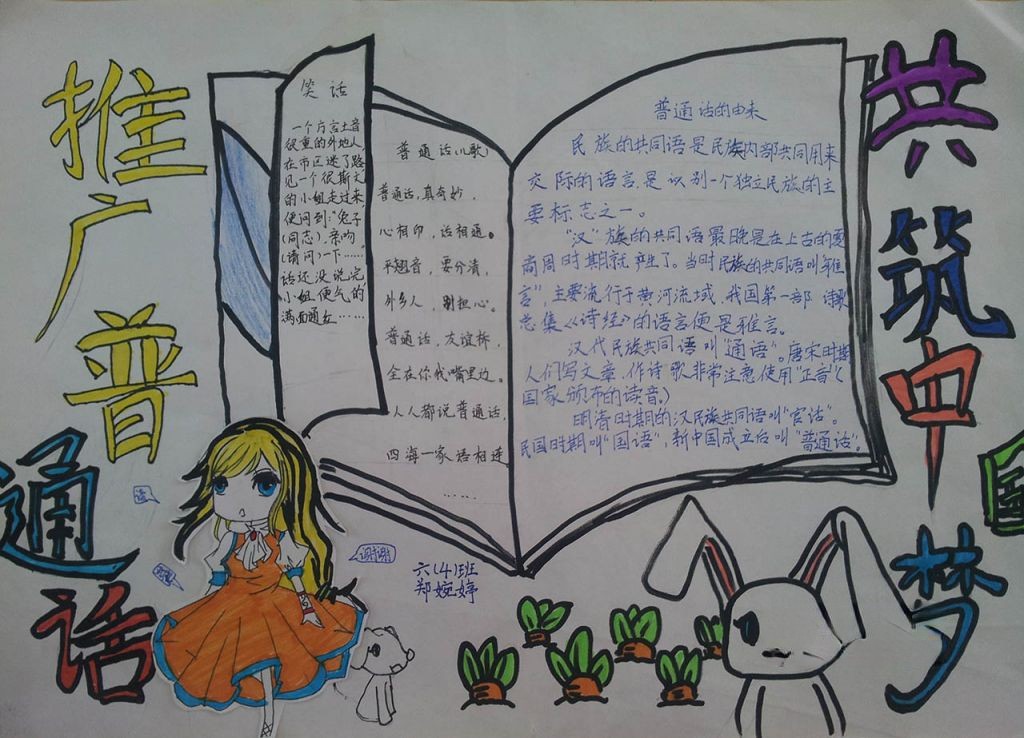 推广普通话
共筑中国梦
笑话
一个方言土音
很重的外地人
在市区迷了路
见一个很斯文
的小姐走过来,
便问到:"兔子
(同志),亲吻
(请问)一下……
话还没说完
小姐便气的
满面通红……
普通话(儿歌)
普通话,真奇妙,
心相印,话相通。
平翘音,要分清,
外乡人,别担心。
普通话,友谊桥,
全在你我嘴里边。
人人都说普通话,
四海一家语相连
……
普通话的由来
民族的共同语是民族内部共同用来
交际的语言,是识别一个独立民族的主
要标志之一。
"汉"族的共同语最晚是在上古的夏
商周时期就产生了。当时民族的共同语叫"雅
言",主要流行于黄河流域,我国第一部诗歌
总集《诗经》的语言便是雅言。
汉代民族共同语叫"通语"。唐宋时期
人们写文章、作诗歌非常注意使用"正音"(
国家颁布的读音。)
明清时期的汉民族共同语叫"官话"。
民国时期叫"国语",新中国成立后叫"普通话"。
谢谢
六(4)班
郑婉婷